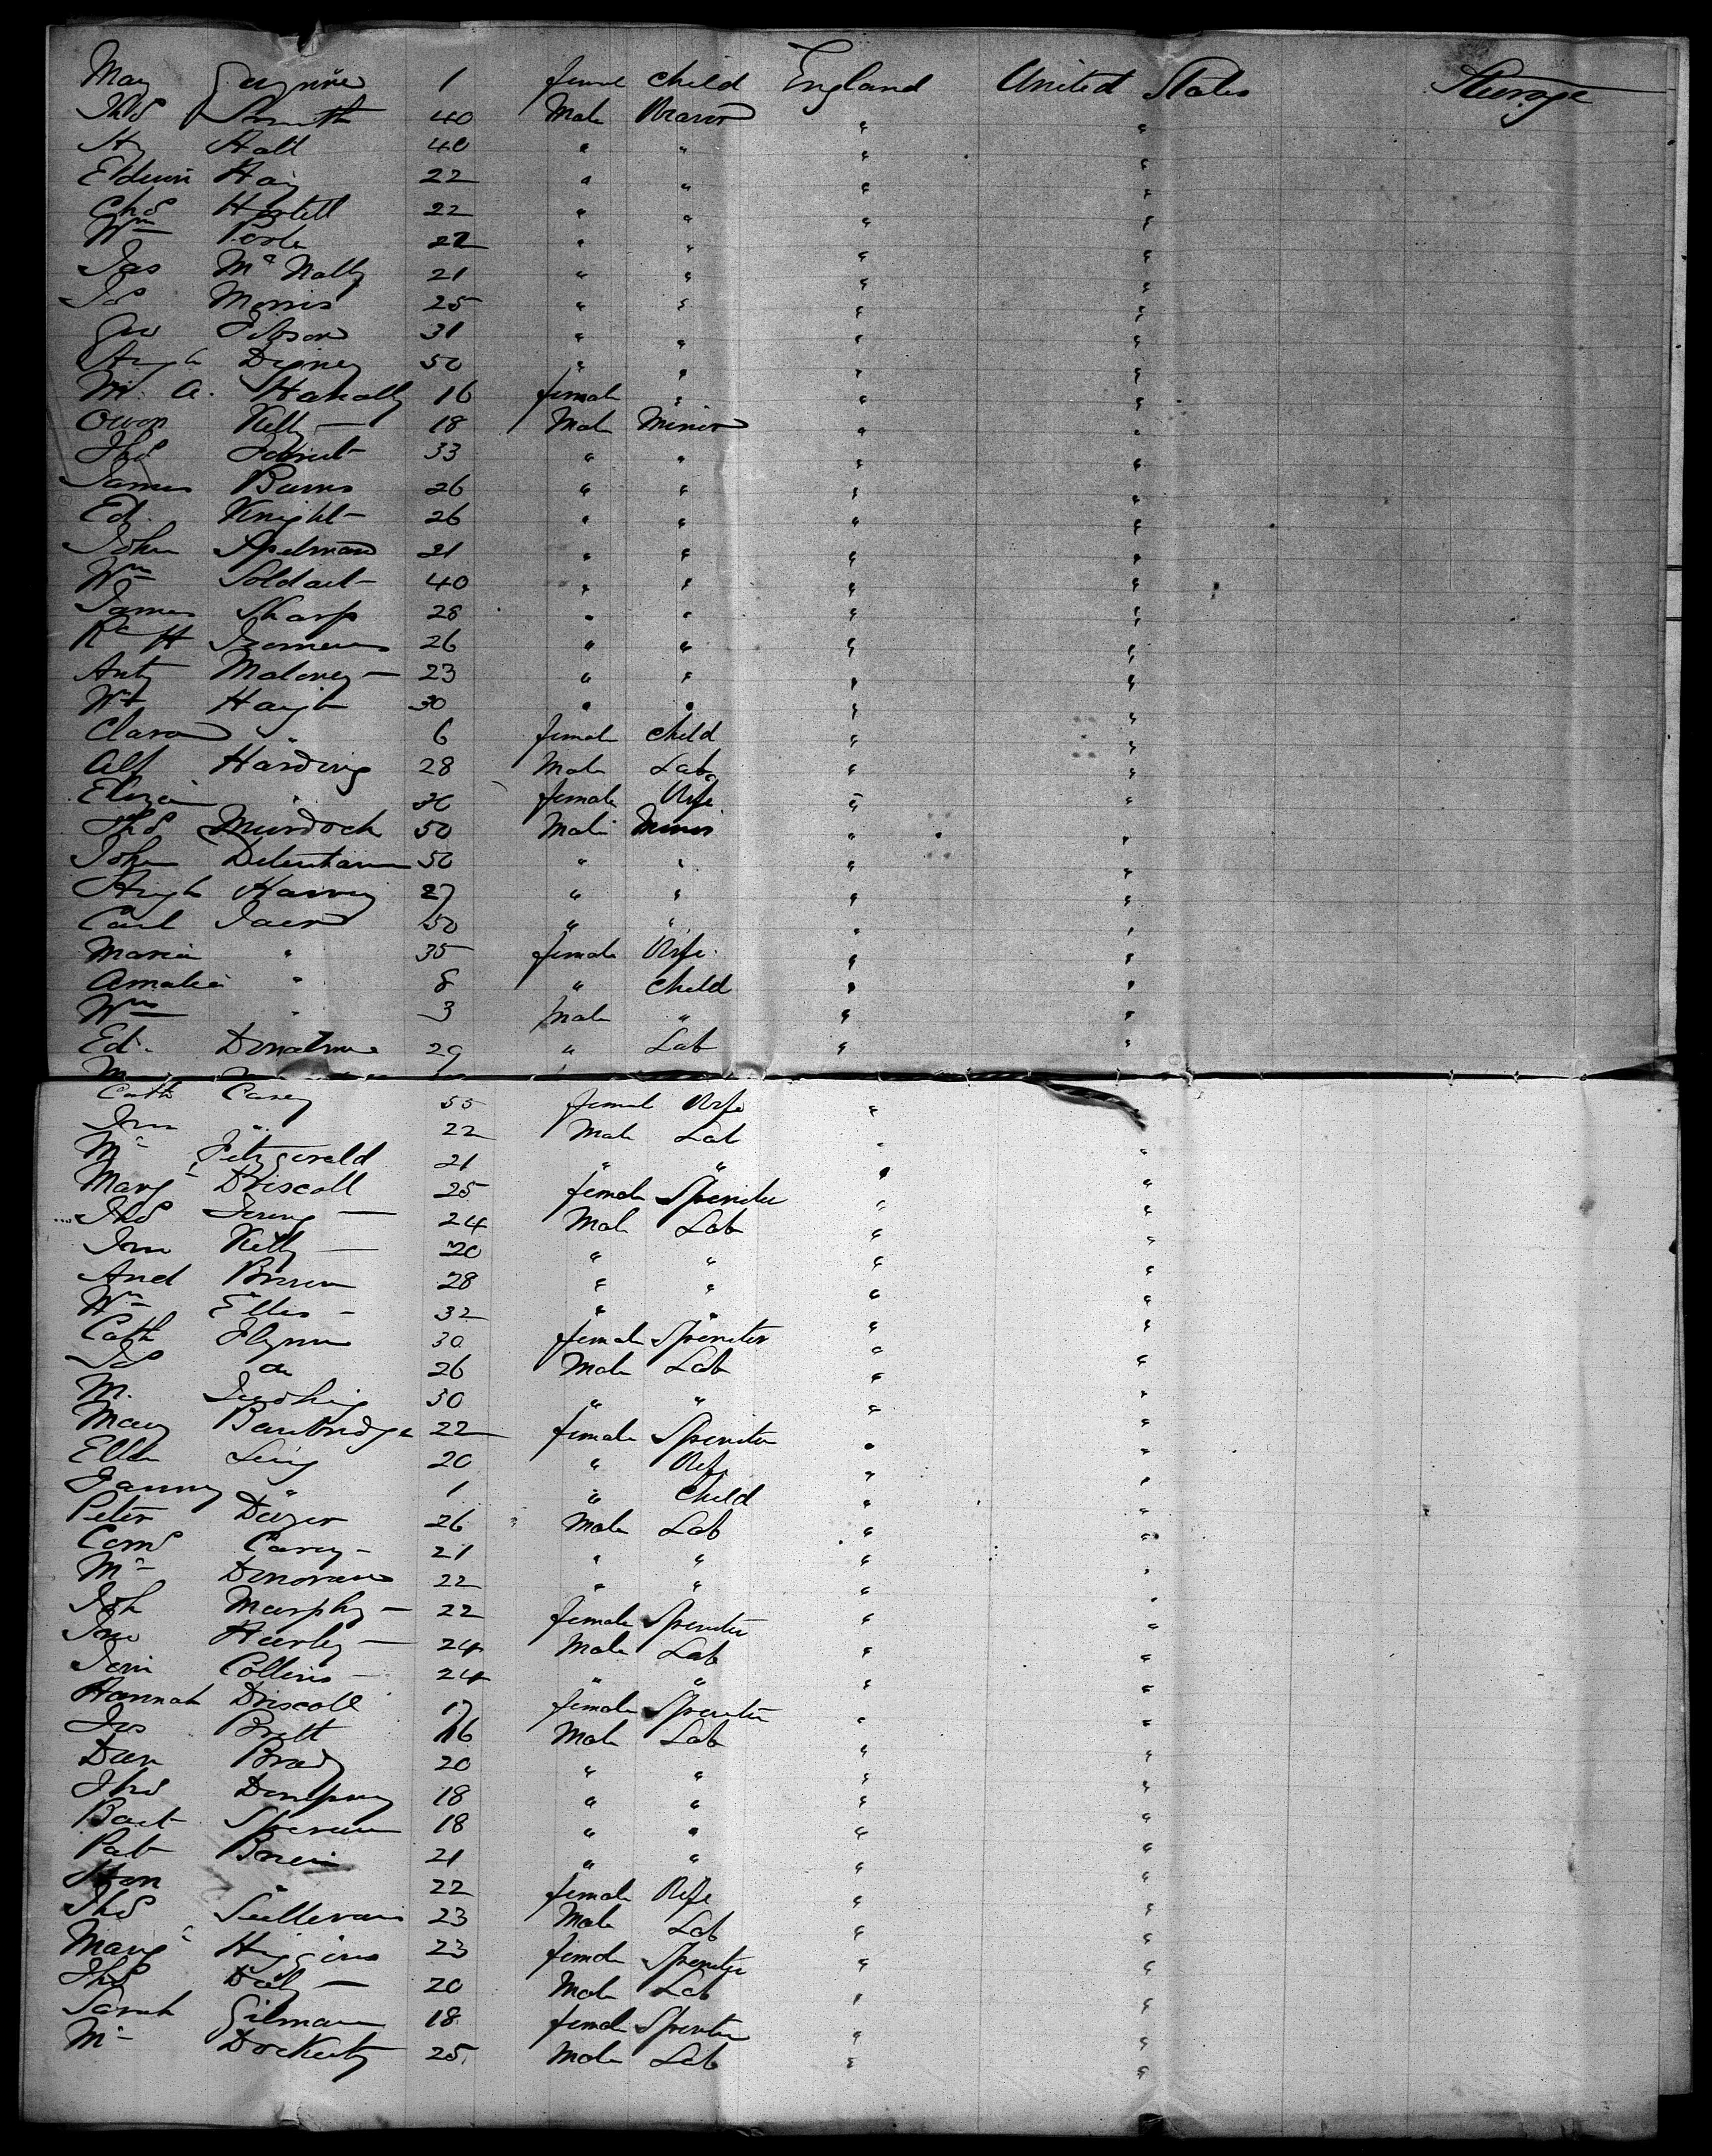 May 1 female child England United States Steerage
Thos Smith 40 Male
Hy Hall 40 " " " "
Edwin Haig 22 " " " "
Chs 22 " " " "
Wm 22 " " " "
Jas McNally 21 " " " "
Js Morris 25 " " " "
Geo Gibson 31 " " " "
Hugh Digney 50 " " " "
M. A. 16 female " " "
Owen Kelly 18 Male Miner " "
Thos 33 " " " "
James Burns 26 " " " "
Ed. Knight 26 " " " "
John Spelman 21 " " " "
Wm 40 " " " "
James Sharp 28 " " " "
Rd H 26 " " " "
Anty Maloney 23 " " " "
Wm Haigh 30 " " " "
Clara " 6 female child " "
Alf Harding 28 Male Lab " "
Eliza " 30 female Wife " "
Thos Murdoch 50 Male Miner " "
John 50 " " " "
Hugh Harvey 27 " " " "
Carl 50 " " " "
Maria " 35 female Wife " "
Amalia " 8 " child " "
Wm " 3 Male " " "
Ed. 29 " Lab " "
Cath Casey 55 female Wife "
Jno " 22 Male Lab " "
Ml Fitzgerald 21 " " " "
Margt Driscoll 25 female Spinster " "
Thos 24 Male Lab " "
Jno Kelly 20 " " " "
And Brown 28 " " " "
Wm Ellis 32 " " " "
Cath Flynn 30 female Spinster " "
Js 26 Male Lab " "
M. 30 " " " "
Mary Baubridge 22 female Spinster " "
Ellen 20 " Wife " "
Fanny " 1 " Child " "
Peter 26 Male Lab " "
Corns Carey 21 " " " "
Ml Donovan 22 " " " "
Joh Murphy 22 female Spinster " "
Jno Hurley 24 Male Lab " "
Jerr Collins 24 " " " "
Hannah Driscoll 17 female Spinster " "
Jas Britt 16 Male Lab " "
Dan Brady 20 " " " "
Thos Dempsey 18 " " " "
Bart 18 " " " "
Pat 21 " " " "
Hon " 22 female Wife " "
Thos Sullivan 23 Male Lab " "
Margt Higgins 23 female Spinster " "
Thos Daly 20 Male Lab " "
Sarah Gilman 18 female Spinster " "
Ml Dockerty 25 Male Lab " "